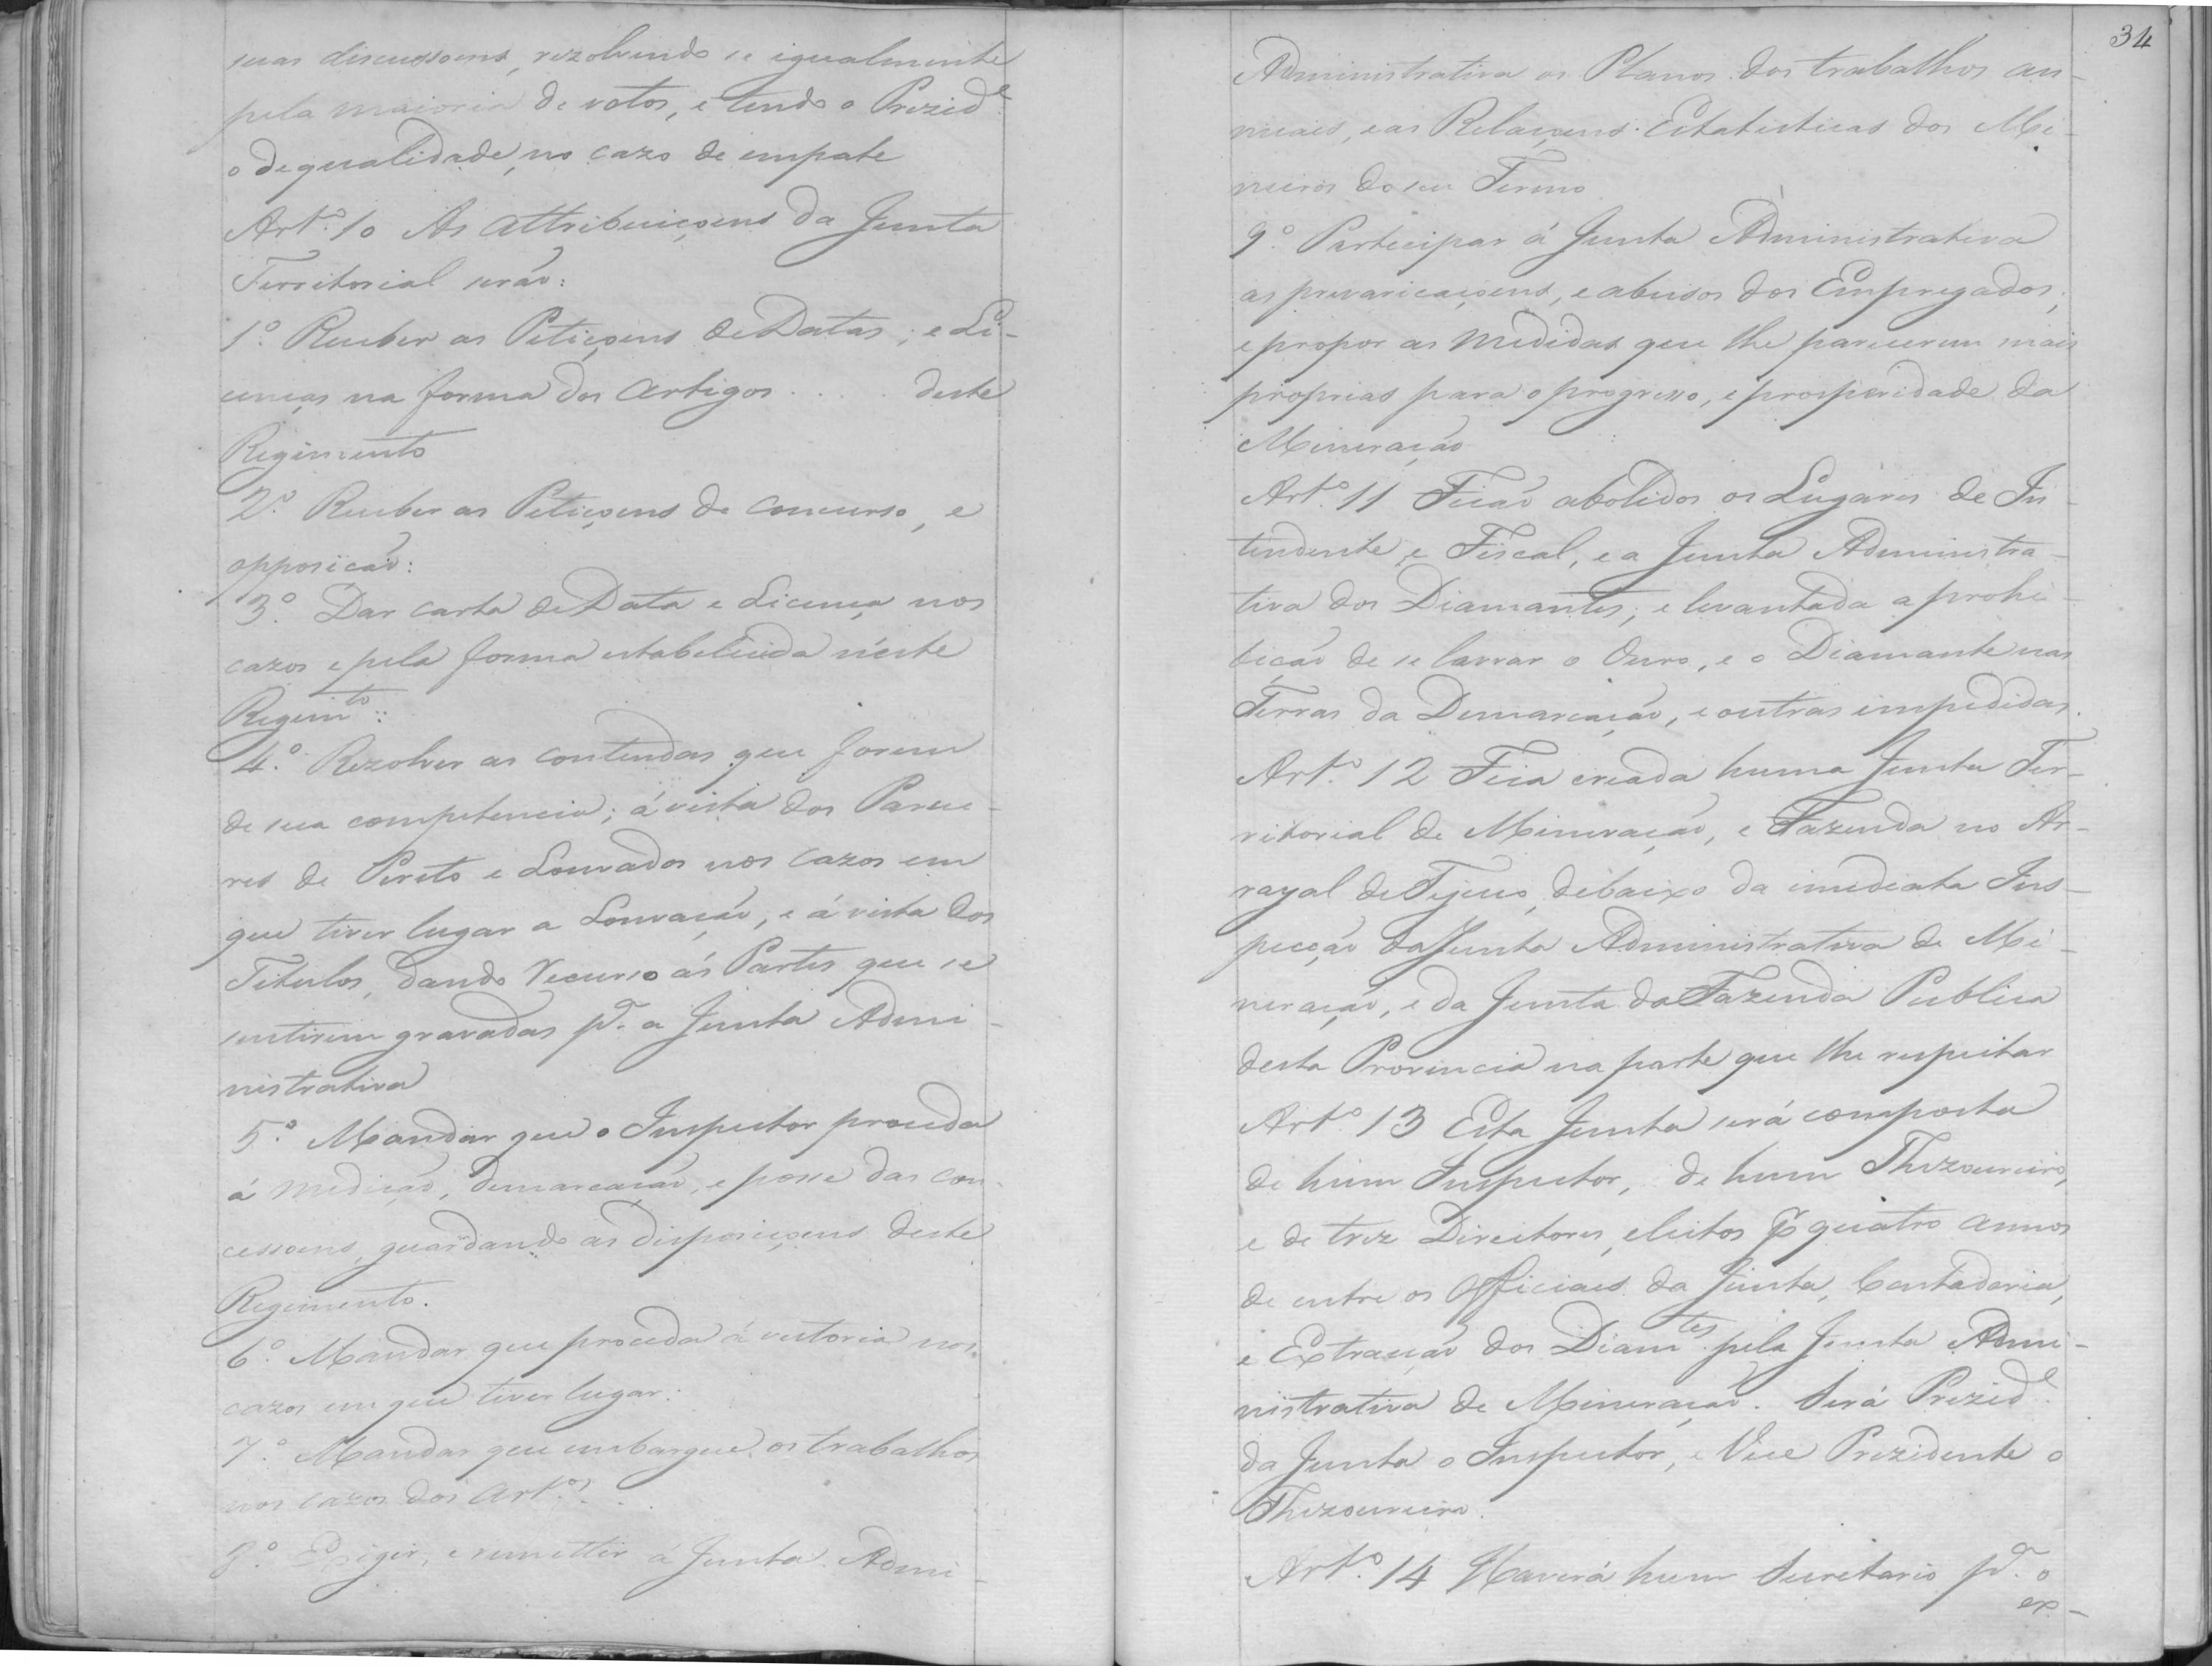 suas discussoens, rezolvendo se igualmente
pela maioria de votos, e tendo o Prezid.e
o de qualidade, no cazo de empate
Art.º 10 As attribuiçoens da Junta
Territorial seráõ:
1.º Receber as Petiçoens de Datas, e Li-
cenças na forma dos artigos . . . . deste
Regimento
2.º Receber as Petiçoens de Concurso, e
opposicaõ:
3.º Dar carta de Data e Licença nos
cazos e pela forma estabelecida n'este
Regim.to:
4.º Rezolver as contendas que forem
de sua competencia; á vista dos Parece-
res de Perito e Louvados nos cazos em
que tiver lugar a Louvaçaõ, e á vista dos
Titulos, dando recurso ás Partes que se
sentirem gravadas p.a a Junta Admi-
nistrativa
5.º Mandar que o Inspector proceda
á mediçaõ, demarcaçaõ, e posse das con-
cessoens, guardando as disposiçoens deste
Regimento.
6.º Mandar que proceda á vestoria nos
cazos em que tiver lugar:
7.º Mandar que embargue os trabalhos
nos cazos dos Art.os . .
8.º Exigir, e remetter á Junta Admi-
34
Administrativa os Planos dos trabalhos an-
nuaes, e as Relaçoens Estatisticas dos Mi-
neiros do seu Termo
9.º Participar á Junta Administrativa
as prevaricaçoens, e abusos dos Empregados,
e propor as medidas que lhe parecerem mais
proprias para o progresso, e prosperidade da
Mineraçaõ
Art.º 11 Ficaõ abolidos os Lugares de In-
tendente, e Fiscal, e a Junta Administra-
tiva dos Diamantes; e levantada a prohi-
biçaõ de se lavrar o Ouro, e o Diamante nas
Terras da Demarcaçaõ, e outras impedidas.
Art.º 12 Fica creada huma Junta Ter-
ritorial de Mineraçaõ, e Fazenda no Ar-
rayal de Tejuco, debaixo da imediata Ins-
pecçaõ da Junta Administrativa de Mi-
neraçaõ, e da Junta da Fazenda Publica
desta Provincia na parte que lhe respeitar
Art.º 13 Esta Junta será composta
de hum Inspector, de hum Thezoureiro,
e de trez Directores, eleitos p quatro annos
de entre os Officiaes da Junta, Contadoria,
e Extracçaõ dos Diam.tes pela Junta Admi-
nistrativa de Mineraçaõ. Será Prezid.e
da Junta o Inspector, e Vice Prezidente o
Thezoureiro.
Art.º 14 Haverá hum Secretario p.a o
ex-